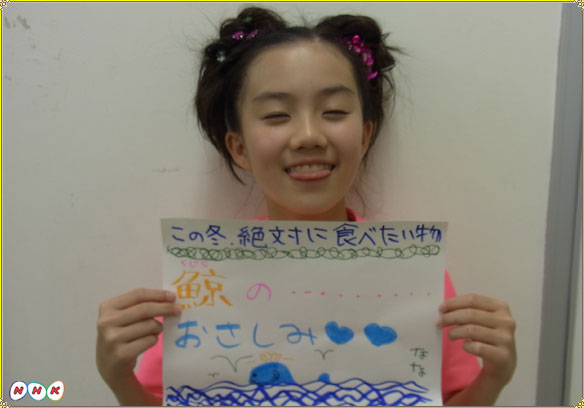 この冬、絶対に食べたい物
くじら
鯨の・・・・・・・・・
おさしみ
なな
NHK